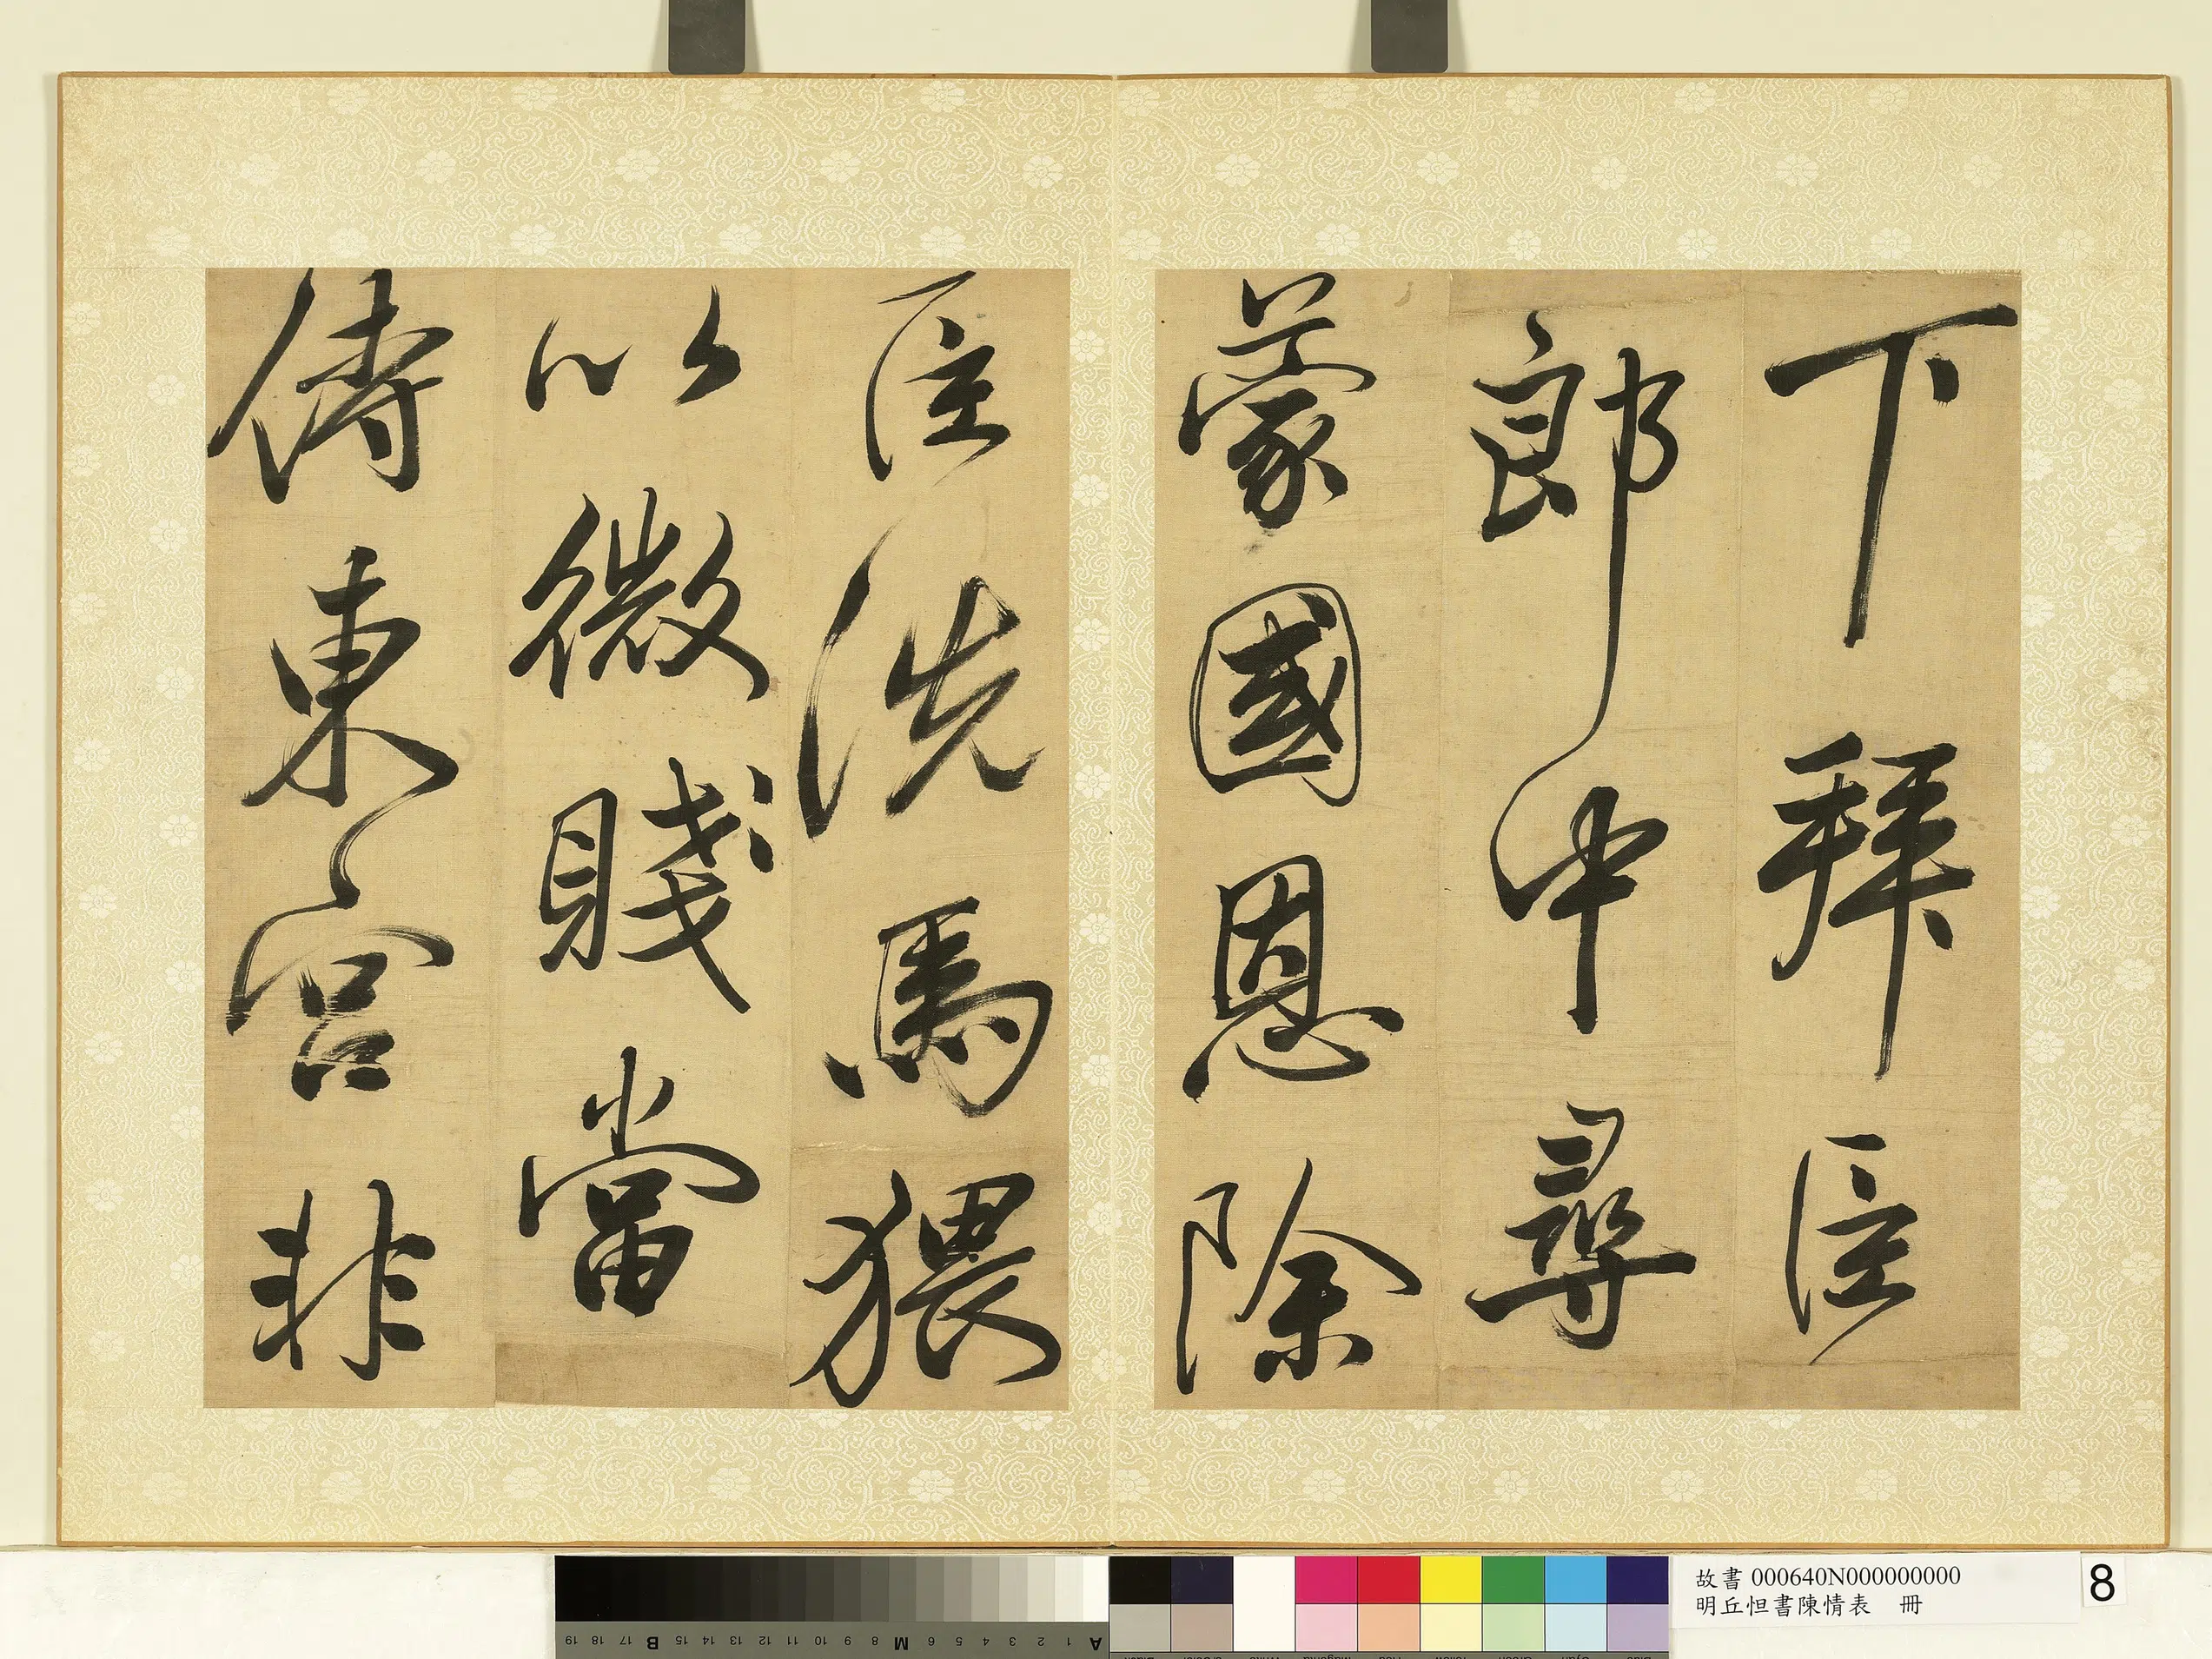 下拜臣
郎中尋
蒙國恩除
臣洗馬猥
以微賤當
侍東宮非
故書 000640N000000000
明丘怛書陳情表 冊
8
19 18 17 B 16 15 14 13 12 11 10 9 8 M 6 5 4 3 2 1 A